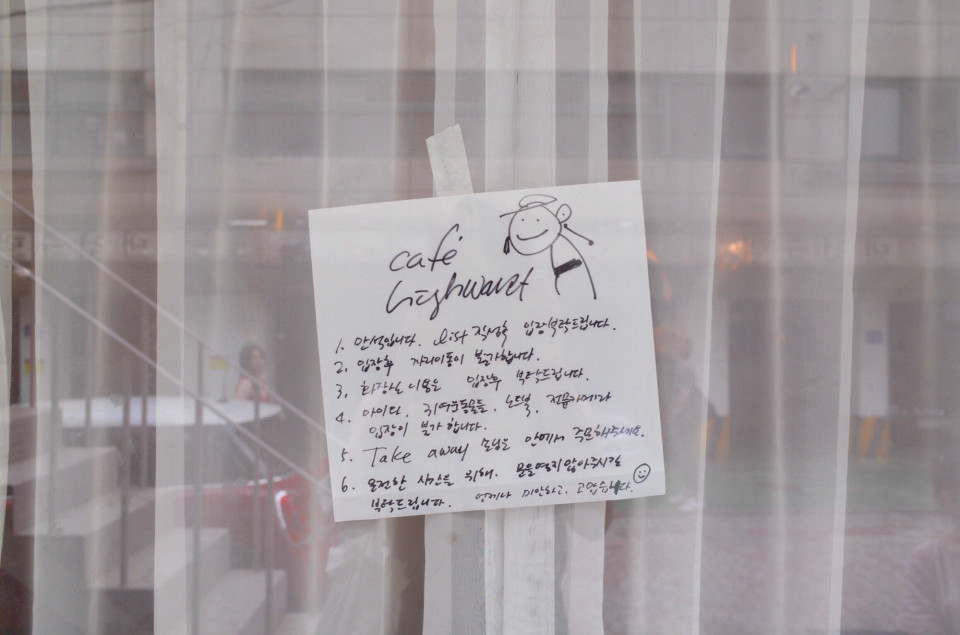 café
highwaist
1. 만석입니다. list 작성후 입장부탁드립니다.
2. 입장후 자리이동이 불가합니다.
3. 화장실 이용은 입장후 부탁드립니다.
4. 아이디. 귀여운동물들. 노트북. 전문카메라
입장이 불가합니다.
5. Take away 손님은 안에서 주문해주세요.
6. 온전한 시간을 위해. 문을열지않아주시길
부탁드립니다. 언제나 미안하고. 고맙습니다.